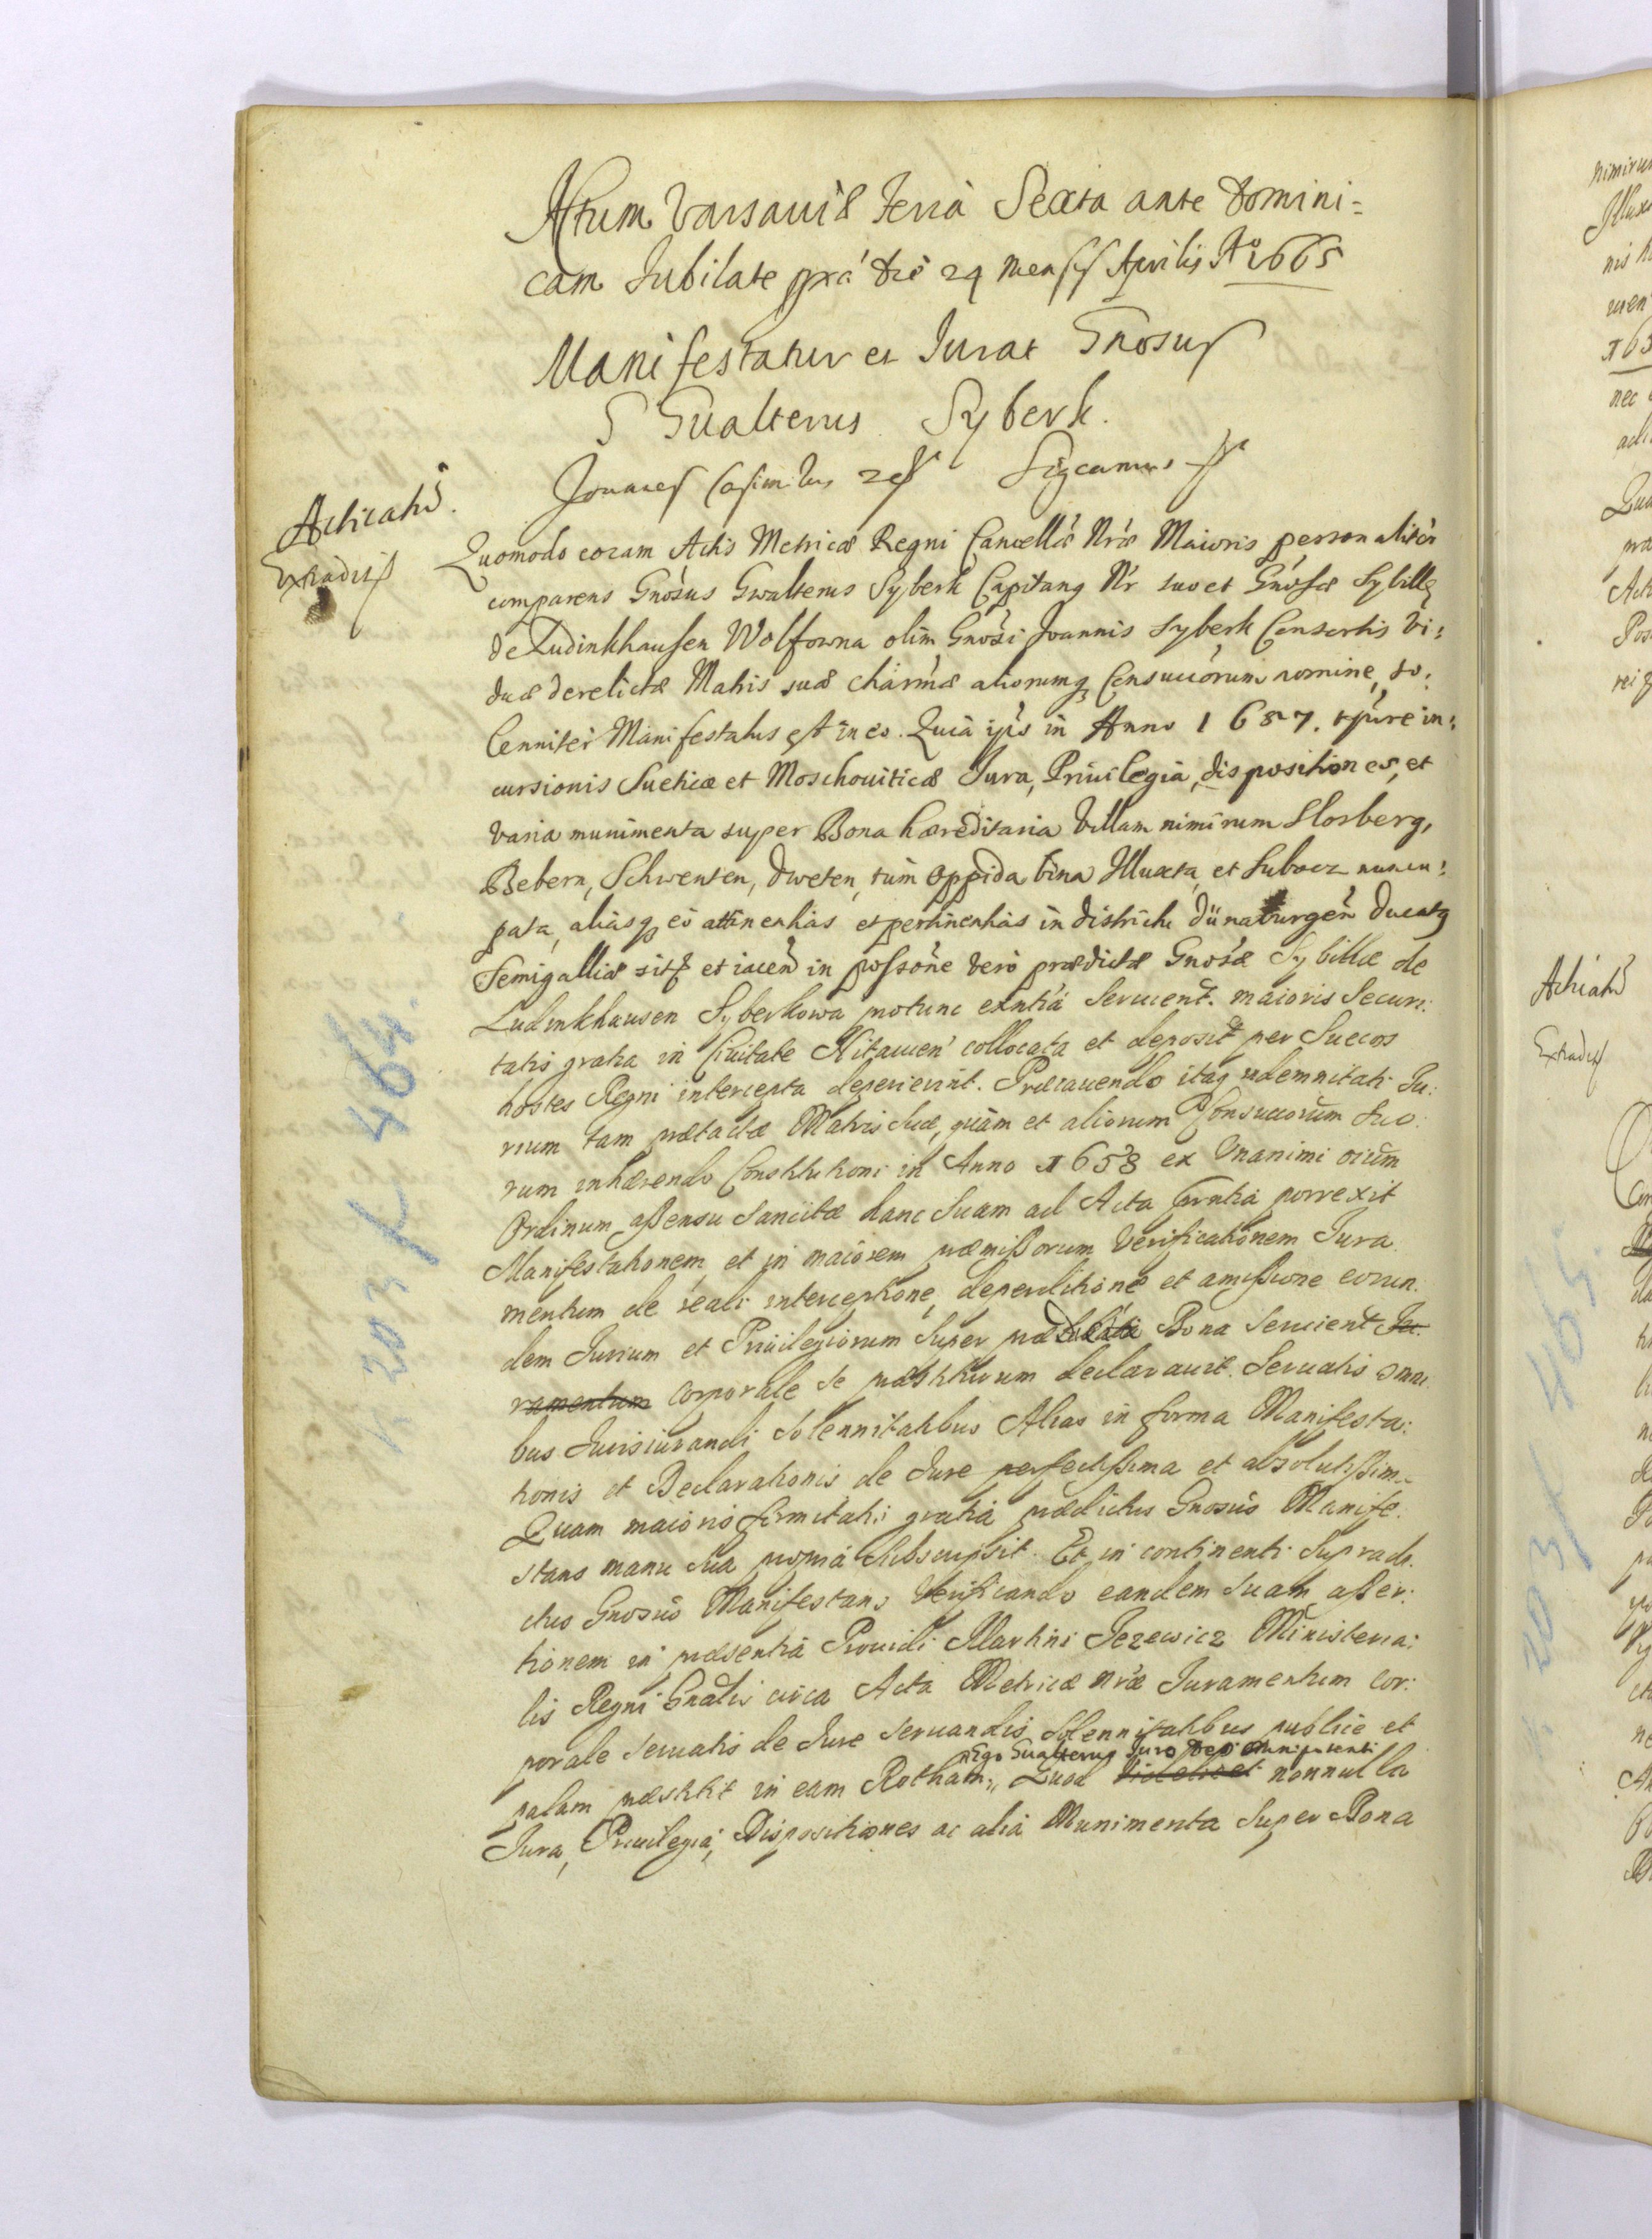 Actum Varsaviæ Feria Sexta ante Domini=
cam Jubilate pxa die 24 mensis Aprilis Aº 1665
Manifestatur et Jurat Gnosus
Gualterus Syberk.
Acticatū.
Extradit
Quomodo coram Actis Metricæ Regni Cancellæ Nræ Maioris personalitèr
comparens Gnosus Gwalterus Syberk Capitang Nr suo et Gnosæ Sybillę
de Ludinkhausen Wolfowna olim Gnosi Joannis Syberk Consortis Vi:
duæ derelictæ Matris suæ charmæ aliorumq Consuccorum nomine, so:
lenniter Manifestatus est in eo. Quia ipso in Anno 1657. tpūre in:
cursionis Sueticæ et Moschouiticæ Jura, Priuilegia, dispositiones, et
varia munimenta super Bona hæreditaria Villam nimirum Slosberg,
Bebern, Schwenten, Dweten, tum Oppida bina Illuxta, et Subocz nuncu:
pata, aliasq eo attinentias et pertinentias in districtu Dünaburgeñ Ducatq
Semigalliæ sit et iaceñ in possone vero prædictæ Gnosæ Sybillæ de
Ludinkhausen Syberkowa protunc exntia seruient. maioris Securi:
tatis gratia in Ciuitate Mitauien collocata et deposit per Suecos
hostes Regni intercepta deperierint. Præcauendo itaq indemnitati Ju:
rium tam prætactæ Matris suæ, quàm et aliorum Consuccorum suo:
rum inhærendo Constitutioni in Anno 1658 ex Vnanimi oium
Ordinum assensu sancitæ hanc suam ad Acta præntia porrexit
Manifestationem, et in maiorem præmissorum Verificationem Jura
mentum de reali interceptione, deperditione et amissione eorun.
dem Jurium et Priuilegiorum super Bona seruient Ju:
ramentum corporale se præstiturum declarauit. Seruatis omni
bus Jurisiurandi solennitatibus Alias in forma Manifesta:
tionis et Declarationis de Jure perfectissima et absolutissim..
Quam maioris firmitatis gratia prædictus Gnosus Manife.
stans manu sua propria subscripsit. Et in continenti supradi.
ctus Gnosus Manifestans Verificando eandem suam asser:
tionem in præsentia Prouidi Martini Jezewicz Ministeria:
lis Regni Gnalis circa Acta Metricæ Nræ Juramentum cor:
porale seruatis de Jure seruandis solennitatibus publice et
Ego Gualterus Juro Deo Omnipotenti
palam præstitit in eam Rotham: Quod videlicet nonnulla
Jura, Priuilegia, Dispositiones ac alia Munimenta super Bona
k 203 f 464.
Acticatū
Extradit
k 203 f 465.